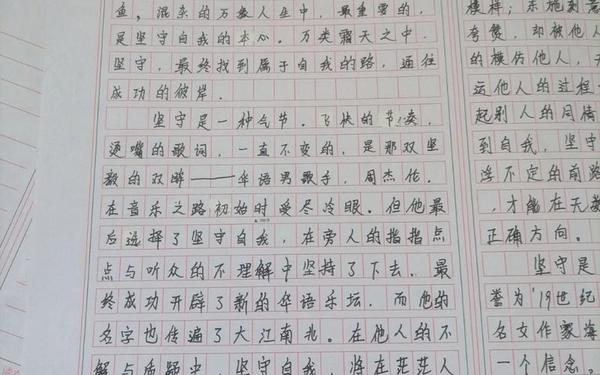 鱼，混杂的万象人生中，最重要的，
是坚守自我的本心。万类霜天之中，
坚守，最终找到属于自我的路，通往
成功的彼岸。
坚守是一种气节。飞快的节凑，
烫嘴的歌词，一直不变的，是那双坚
毅的双眸——华语男歌手，周杰伦。
在音乐之路初始时受尽冷眼。但他最
后选择了坚守自我，在旁人的指指点
点与听众的不理解中坚持了下去。最
终成功开辟了新的华语乐坛，而他的
名字也传遍了大江南北。在他人的不
解与质疑中，坚守自我，将在茫茫人
模样；东施刻意
有餐，却被他人
的模仿他人，无
运他人的过程
起别人的同情
到自我，坚守
浮不定的前路
，才能在无数
正确方向。
坚守是
誉为'19世纪
名女作家海
一个信念。